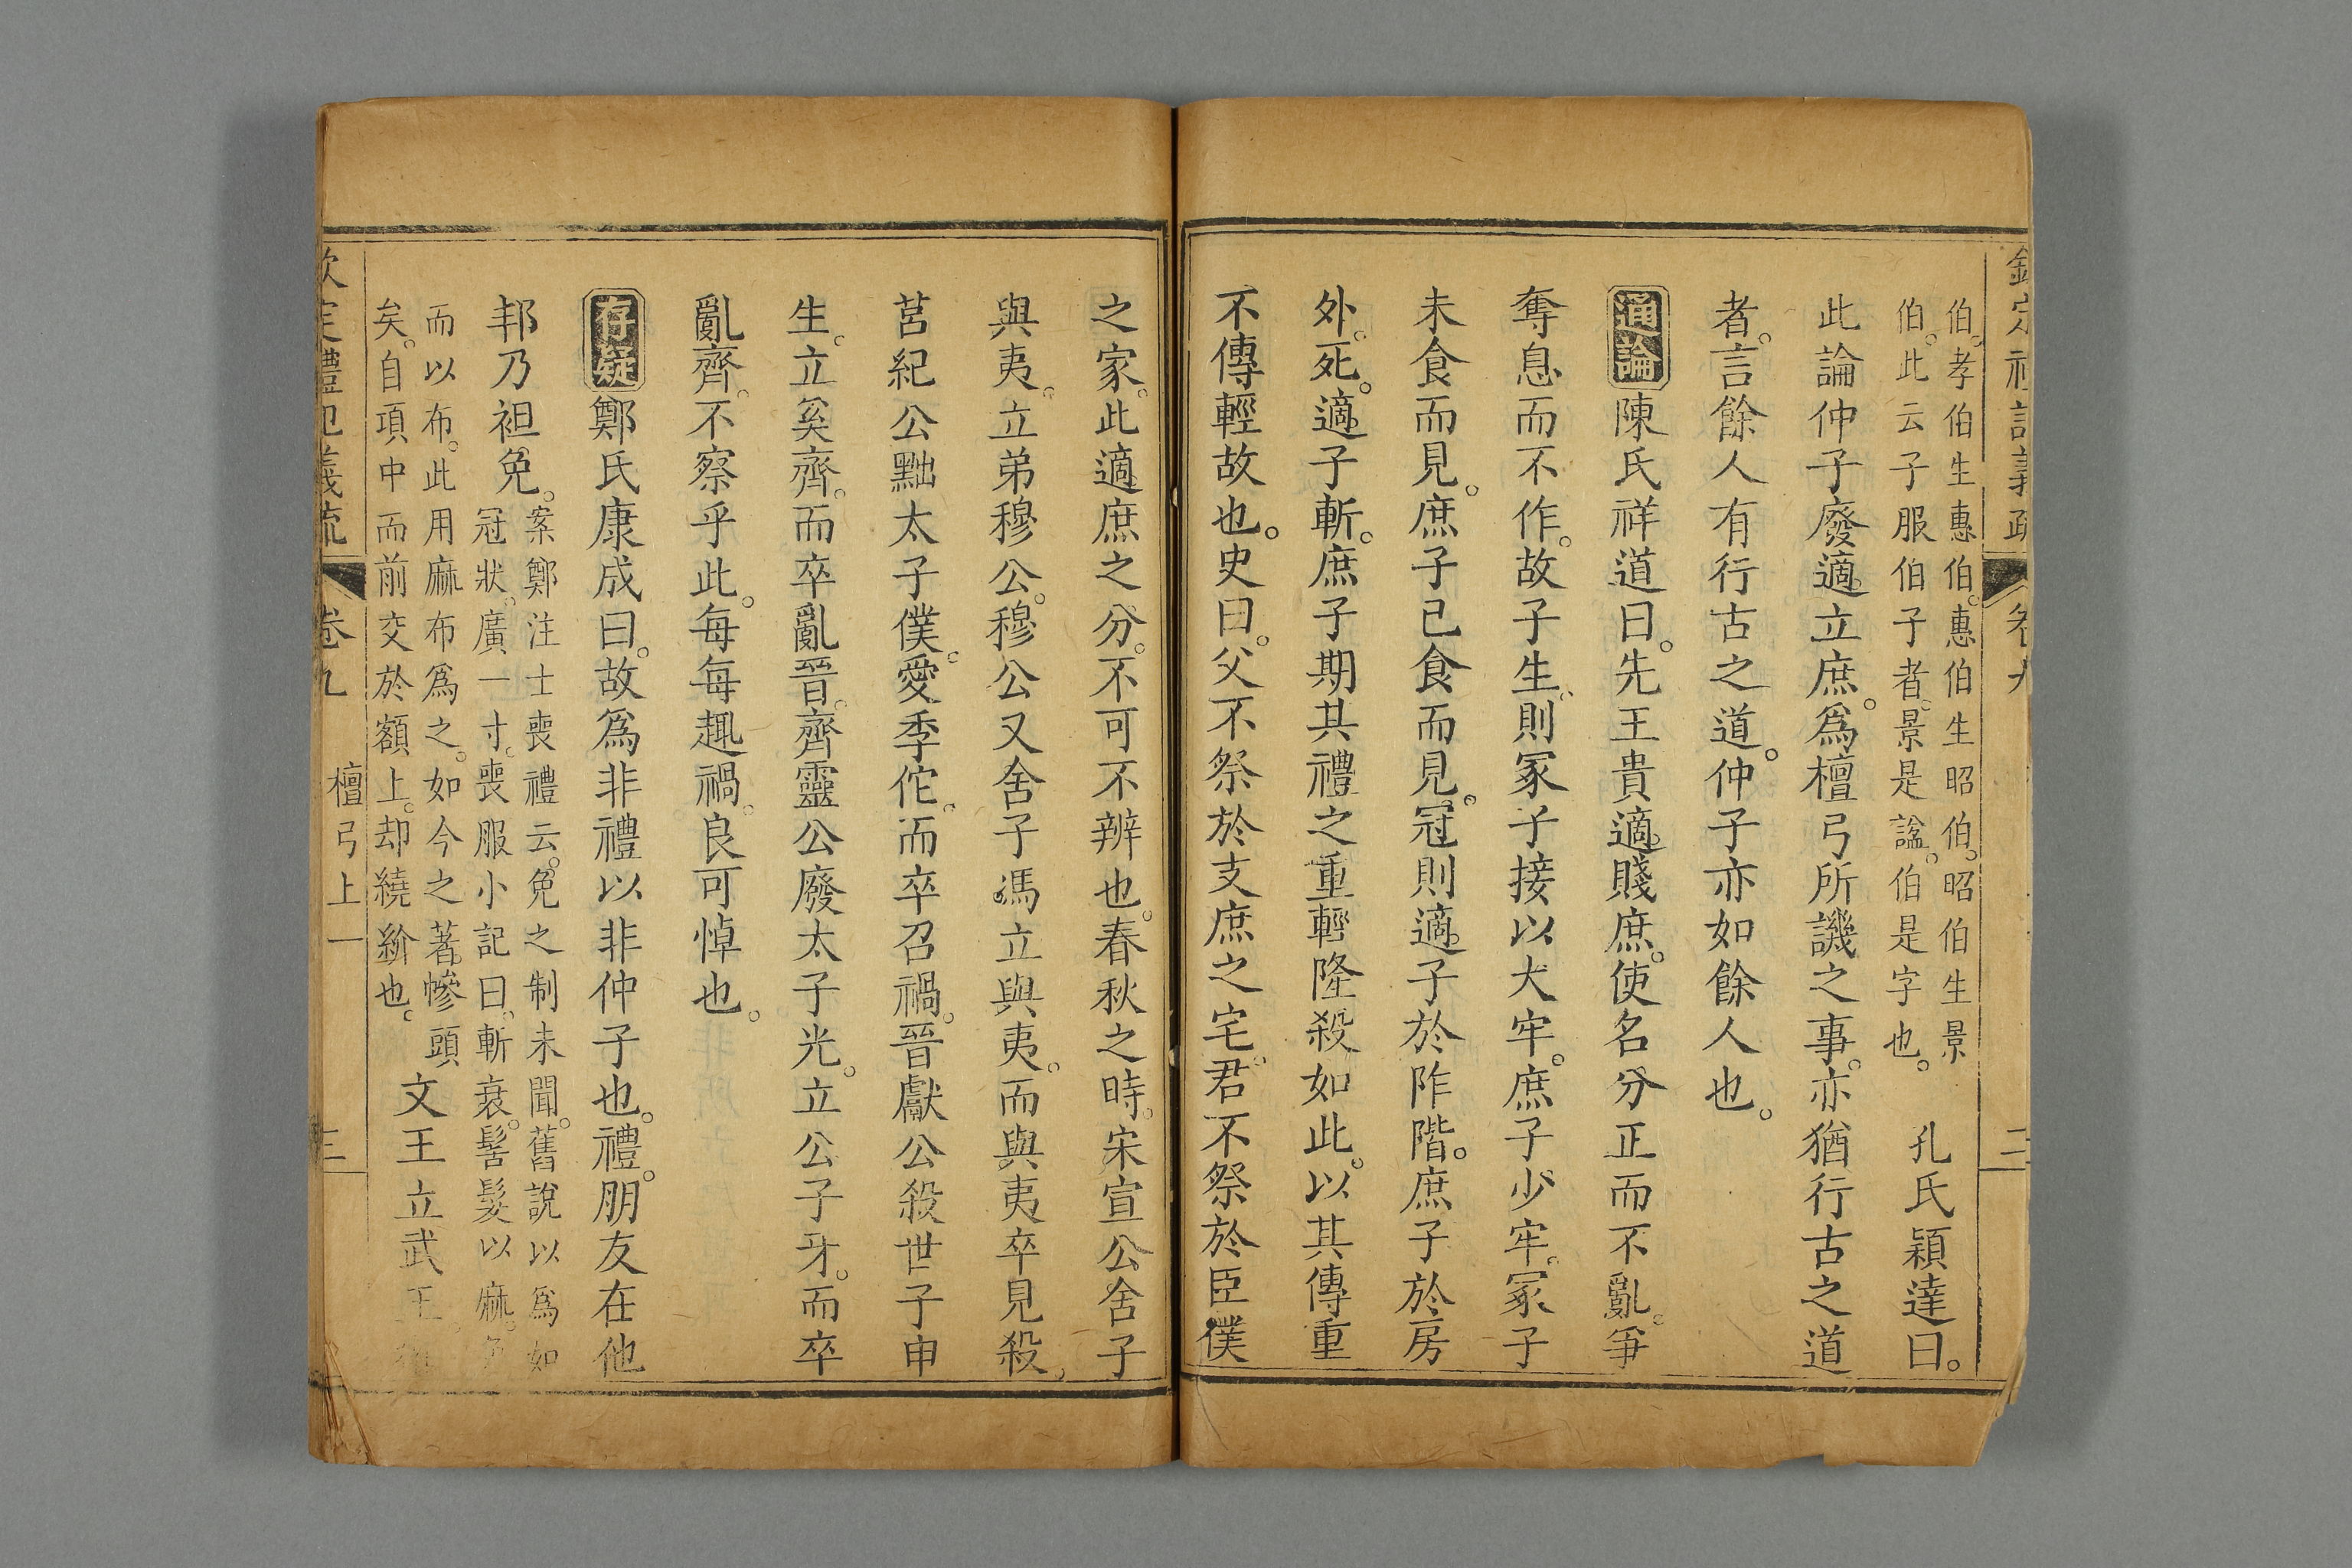 伯。孝伯生惠伯。惠伯生昭伯。昭伯生景
伯。此云子服伯子者。景是諡。伯是字也。
孔氏穎達曰。
此論仲子廢適立庶。爲檀弓所譏之事。亦猶行古之道
者。言餘人有行古之道。仲子亦如餘人也。
通論陳氏祥道曰。先王貴適賤庶。使名分正而不亂。爭
奪息而不作。故子生。則冢子接以大牢。庶子少牢。冢子
未食而見。庶子已食而見。冠則適子於阼階。庶子於房
外。死。適子斬。庶子期。其禮之重輕隆殺如此。以其傳重
不傳輕故也。史曰。父不祭於支庶之宅。君不祭於臣僕
之家。此適庶之分。不可不辨也。春秋之時。宋宣公舍子
與夷。立弟穆公。穆公又舍子馮立與夷。而與夷卒見殺。
莒紀公黜太子僕。愛季佗。而卒召禍。晉獻公殺世子申
生。立奚齊。而卒亂晉。齊靈公廢太子光。立公子牙。而卒
亂齊。不察乎此。每每趣禍。良可悼也。
存疑鄭氏康成曰。故爲非禮以非仲子也。禮。朋友在他
邦乃袒免。
案鄭注士喪禮云。免之制未聞。舊說以爲如
冠狀。廣一寸。喪服小記曰。斬衰。髻髮以麻。免
而以布。此用麻布爲之。如今之著幓頭
矣。自項中而前交於額上。却繞紒也。
文王立武王
欽定禮記義疏 卷九 檀弓上一 三